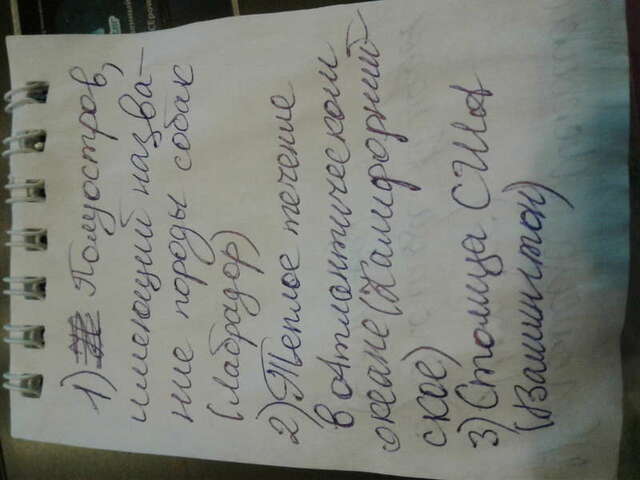 1) Полуостров,
имеющий назва-
ние породы собак
(Лабрадор)
2) Теплое течение
в Атлантическом
океане (Калифорний-
ское)
3) Столица США
(Вашингтон)